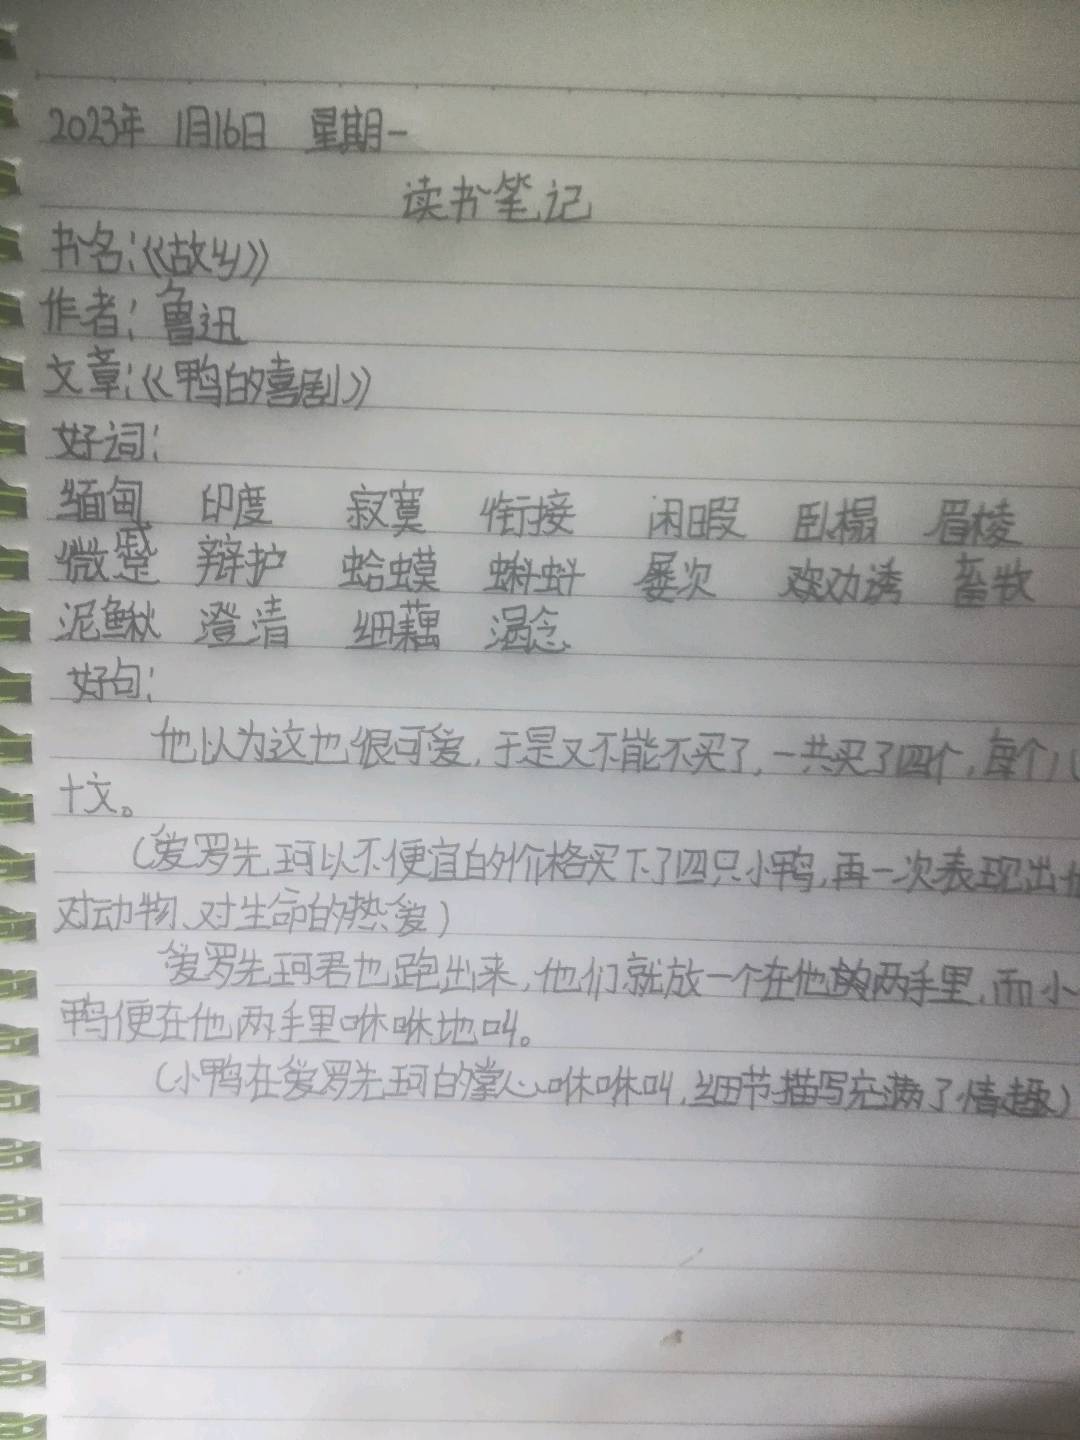 2023年 1月16日 星期一
读书笔记
书名:《故乡》
作者:鲁迅
文章:《鸭的喜剧》
好词:
缅甸 印度 寂寞 衔接 闲暇 卧榻 眉棱
微蹙 辩护 蛤蟆 蝌蚪 屡次 劝诱 畜牧
泥鳅 澄清 细藕 渴念
好句:
他以为这也很可爱,于是又不能不买了,一共买了四个,每个八
十文。
(爱罗先珂以不便宜的价格买下了四只小鸭,再一次表现出他
对动物、对生命的热爱)
爱罗先珂君也跑出来,他们就放一个在他的两手里,而小
鸭便在他两手里咻咻地叫。
(小鸭在爱罗先珂的掌心咻咻叫,细节描写充满了情趣)